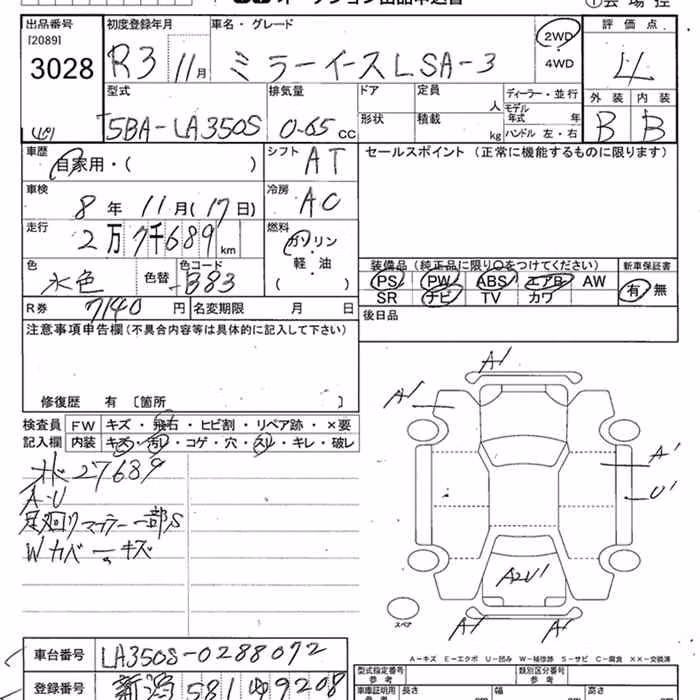 オークション出品申込書
①会場控
出品番号 初度登録年月 車名・グレード 2WD 評価点
[2089]
3028 R3 11月 ミラーイースLSA-3 4WD 4
型式 排気量 ドア 定員 人 ディーラー・並行 外装 内装
5BA-LA350S 0-65 CC 形状 積載 kg モデル年式 年 ハンドル 左・右 B B
車歴 自家用・( ) シフト AT セールスポイント(正常に機能するものに限ります)
車検 8年 11月(17日) 冷房 AC
走行 2万7千689km 燃料 ガソリン・軽・油 ( )
装備品(純正品に限り〇をつけてください) 新車保証書
色 水色 色替 色コード B83 PS PW ABS エアB AW 有・無
SR ナビ TV カワ
R券 7140円 名変期限 月 日 後日品
注意事項申告欄(不具合内容等は具体的に記入して下さい)
修復歴 有 〔箇所 〕
検査員 FW キズ・飛石・ヒビ割・リペア跡・×要
記入欄 内装 キズ・汚レ・コゲ・穴・スリ・キレ・破レ
27689
A・U
足廻りマフラー一部S
Wカバーキズ
A1
A1
A1
U1
A2U1
A1 A1
スペア
A-キズ E-エクボ U-凹み W-補修跡 S-サビ C-腐食 ××-交換済
車台番号 LA350S-0288072
型式指定番号 参考 類別区分番号 参考
登録番号 新潟 581 9208
車庫証明用 参考 長さ cm 幅 cm 高さ cm